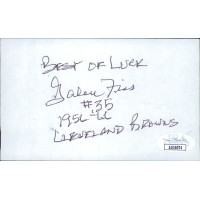 Best of Luck
Galen Fiss
#35
1956-66
Cleveland Browns
JSA